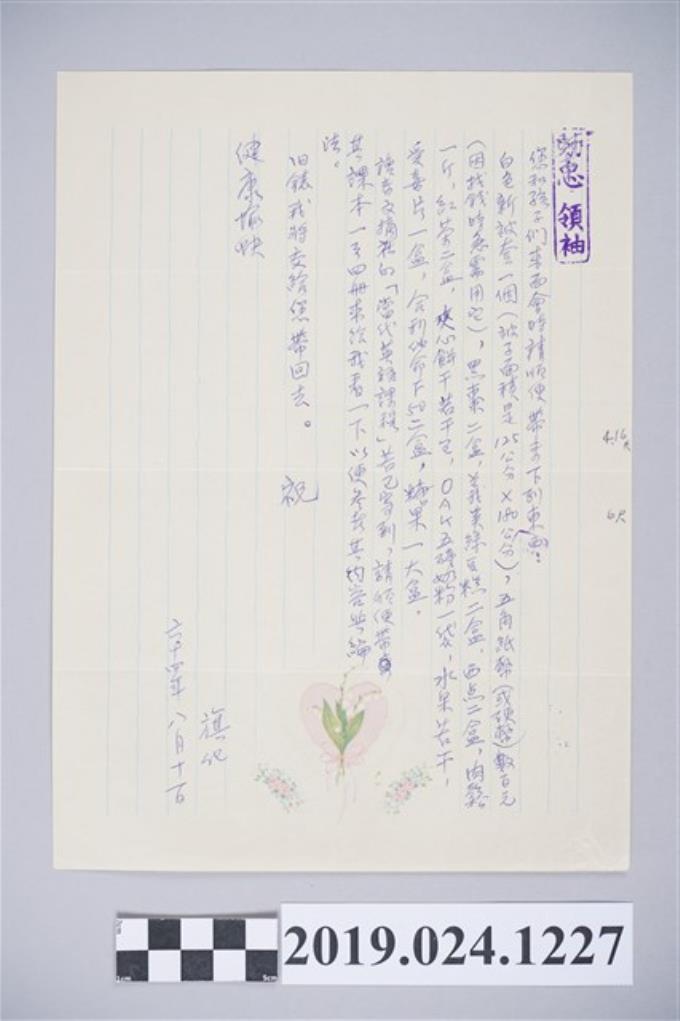 効忠 領袖
您和孩子们来面會時請順便帶来下列東西：
白色新被套一個（被子面積是125公分×180公分），五角紙幣（或硬幣）數百元
（因找錢時急需用它），黑棗二盒，義美綠豆糕二盒，西点二盒，肉鬆
一斤，紅茶二盒，夾心餅干若干包，OAK五磅奶粉一袋，水果若干，
受毒片一盒，合利他命F50二盒，糖果一大盒。
語言文摘社的「當代英語課程」若已寄到，請順便帶
其課本一至四冊来给我看一下以便参考其内容與編
法。
旧錶我將交給您帶回去。
祝
健康愉快
旗化
六十四年八月十一日
4.16尺
6尺
2019.024.1227
1cm
5cm